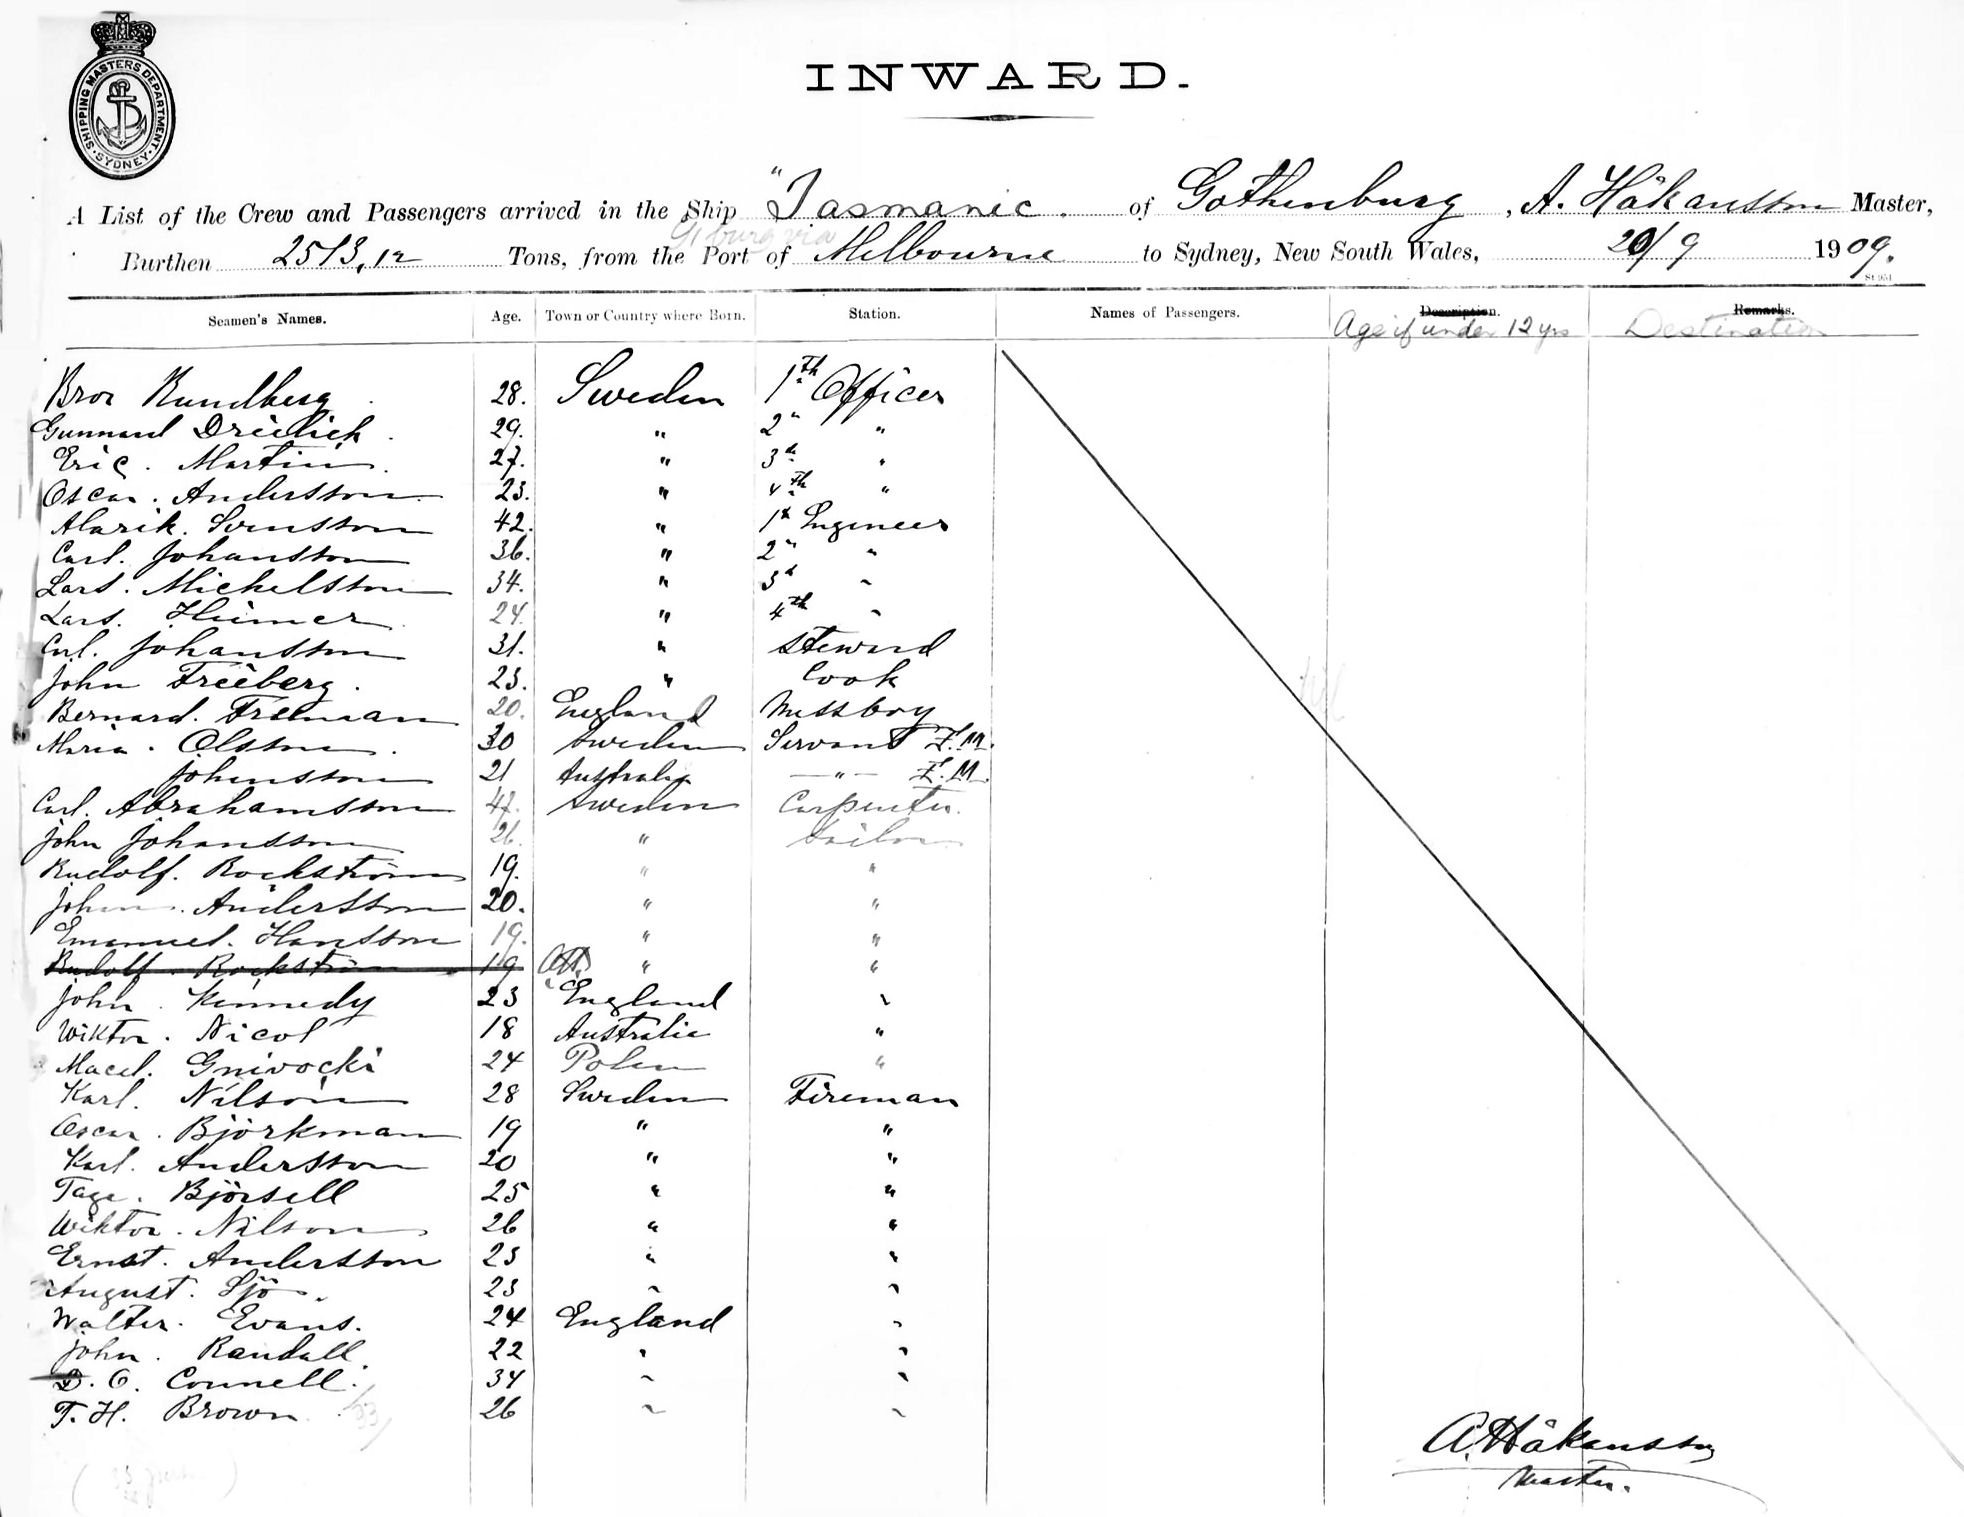 SHIPPING MASTERS DEPARTMENT · SYDNEY ·
INWARD.
A List of the Crew and Passengers arrived in the Ship "Tasmanic. of Gothenburg, A. Håkansson Master,
G'burg via
Burthen 2513,12 Tons, from the Port of Melbourne to Sydney, New South Wales, 20/9 1909.
St.951
Seamen's Names. Age. Town or Country where Born. Station. Names of Passengers. Description. Remarks.
Age if under 12 yrs Destination
Bror Rundberg 28. Sweden 1th Officer
Gunnard Dreilich 29. " 2" "
Eric. Martin 27. " 3d "
Oscar. Andersson 23. " 4th "
Alarik. Svensson 42. " 1st Engineer
Carl. Johansson 36. " 2" "
Lars. Michelsson 34. " 3d "
Lars. Heimer 24. " 4th "
Carl. Johansson 31. " Steward
John Freeberg. 23. " Cook
Bernard. Freeman 20. England Messboy
Maria. Olsson. 30 Sweden Servant F.M.
Johnsson 21 Australia — " — F.M.
Carl. Abrahamsson 47. Sweden Carpenter.
John Johansson 26. " Sailor
Rudolf. Rockström 19. " "
John. Andersson 20. " "
Emanuel. Hansson 19. " "
Rudolf. Rockström 19 AH " "
John. Kennedy 23 England "
Wiktor. Nicol 18 Australia "
Macel. Gnivocki 24 Polen "
Karl. Nilson 28 Sweden Fireman
Oscar. Björkman 19 " "
Karl. Andersson 20 " "
Tage. Björsell 25 " "
Wiktor. Nilson 26 " "
Ernst. Andersson 23 " "
August. Sjö. 23 " "
Walter. Evans. 24 England "
John. Randall. 22 " "
D. O. Connell. 34 " "
T. H. Brown 26 " "
33
A. Håkansson
Master.